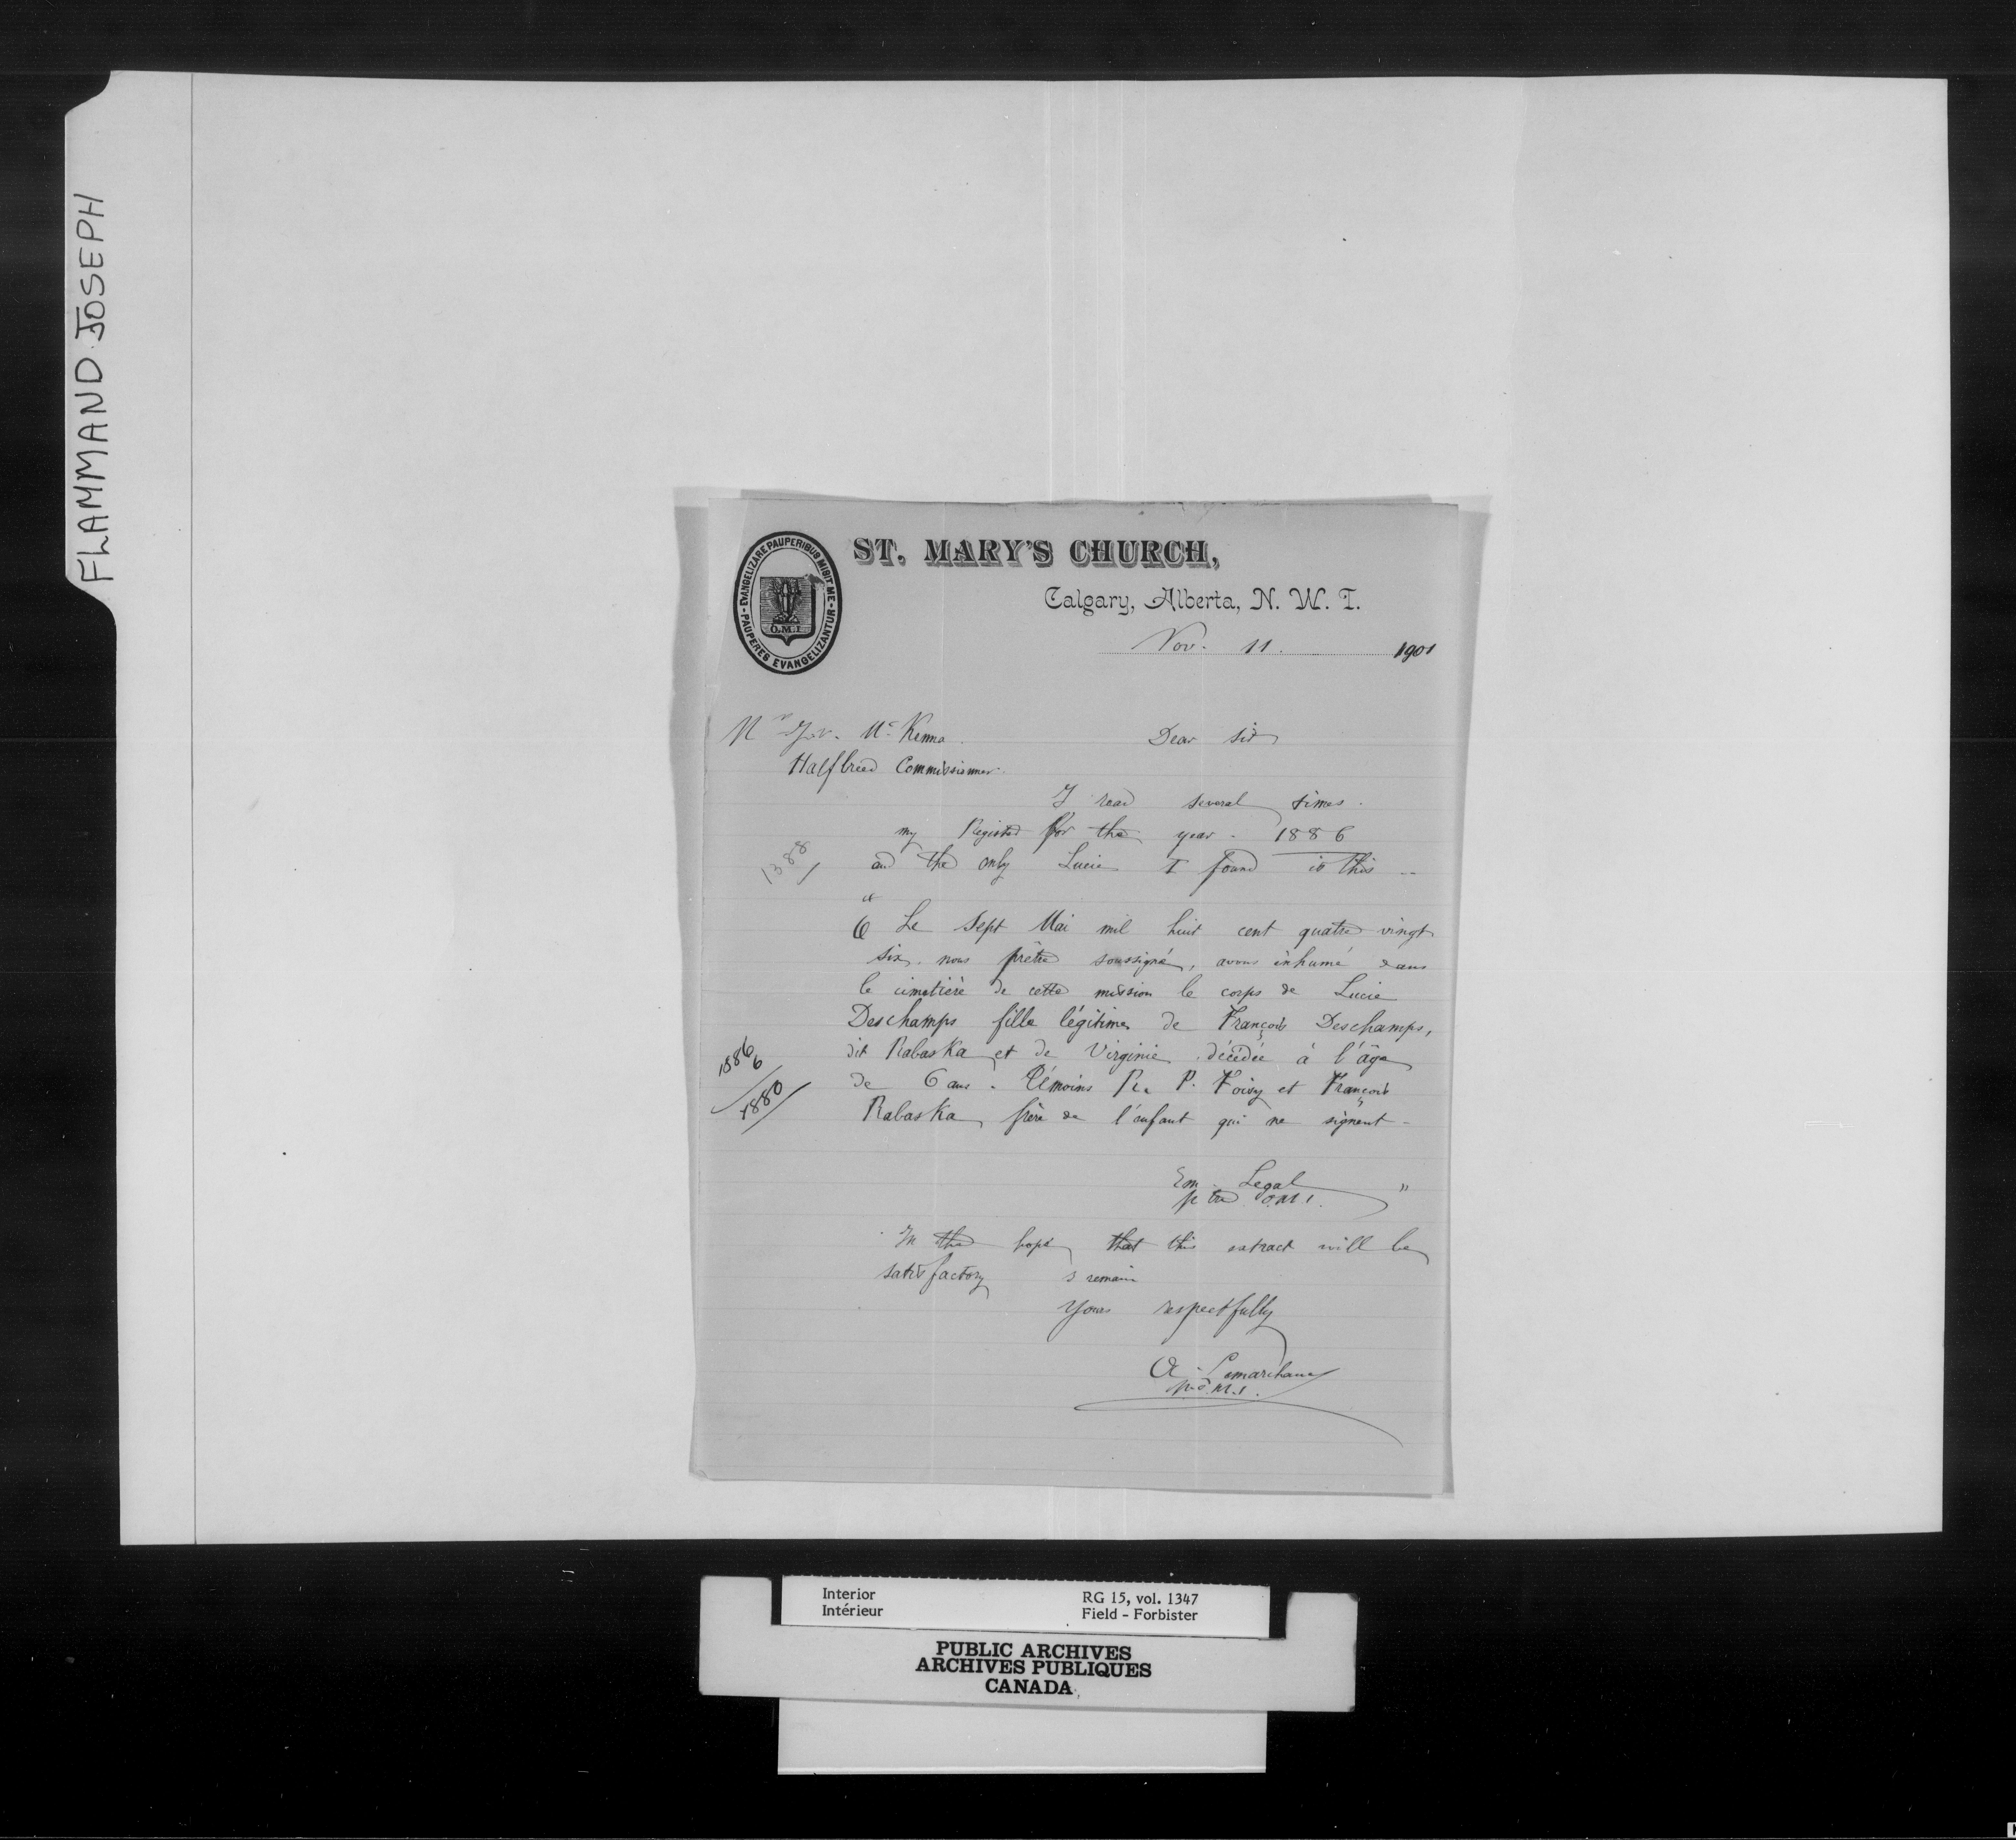 FLAMMAND JOSEPH
EVANGELIZARE PAUPERIBUS MISIT ME - PAUPERES EVANGELIZANTUR -
O.M.I
ST. MARY'S CHURCH,
Calgary, Alberta, N. W. T.
Nov. 11. 1901
Mr McKenna Dear Sir
Halfbreed Commissionner.
I read several times
my Register for the year 1886
and the only Lucie I found is this
1388
" Le Sept Mai mil huit cent quatre vingt
six nous prêtre soussigné, avons inhumé dans
le cimetière de cette mission le corps de Lucie
Deschamps fille légitime de François Deschamps,
dit Rabaska et de Virginie décédée à l'âge
de 6 ans. Témoins P. Foisy et François
Rabaska, frère de l'enfant qui ne signent -
1886
6
1880
Em. Legal "
ptre O.M.I.
In the hope that this extract will be
satisfactory I remain
Yours respectfully
A. Lemarchand
p. O.M.I.
Interior RG 15, vol. 1347
Intérieur Field - Forbister
PUBLIC ARCHIVES
ARCHIVES PUBLIQUES
CANADA